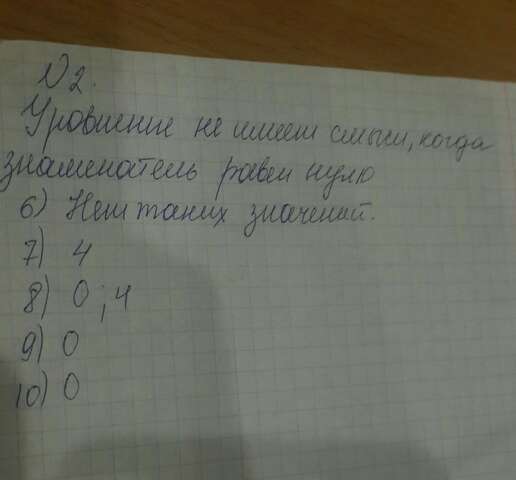 N2.
Уровнение не имеет смысл, когда
знаменатель равен нулю
6) Нет таких значений.
7) 4
8) 0; 4
9) 0
10) 0